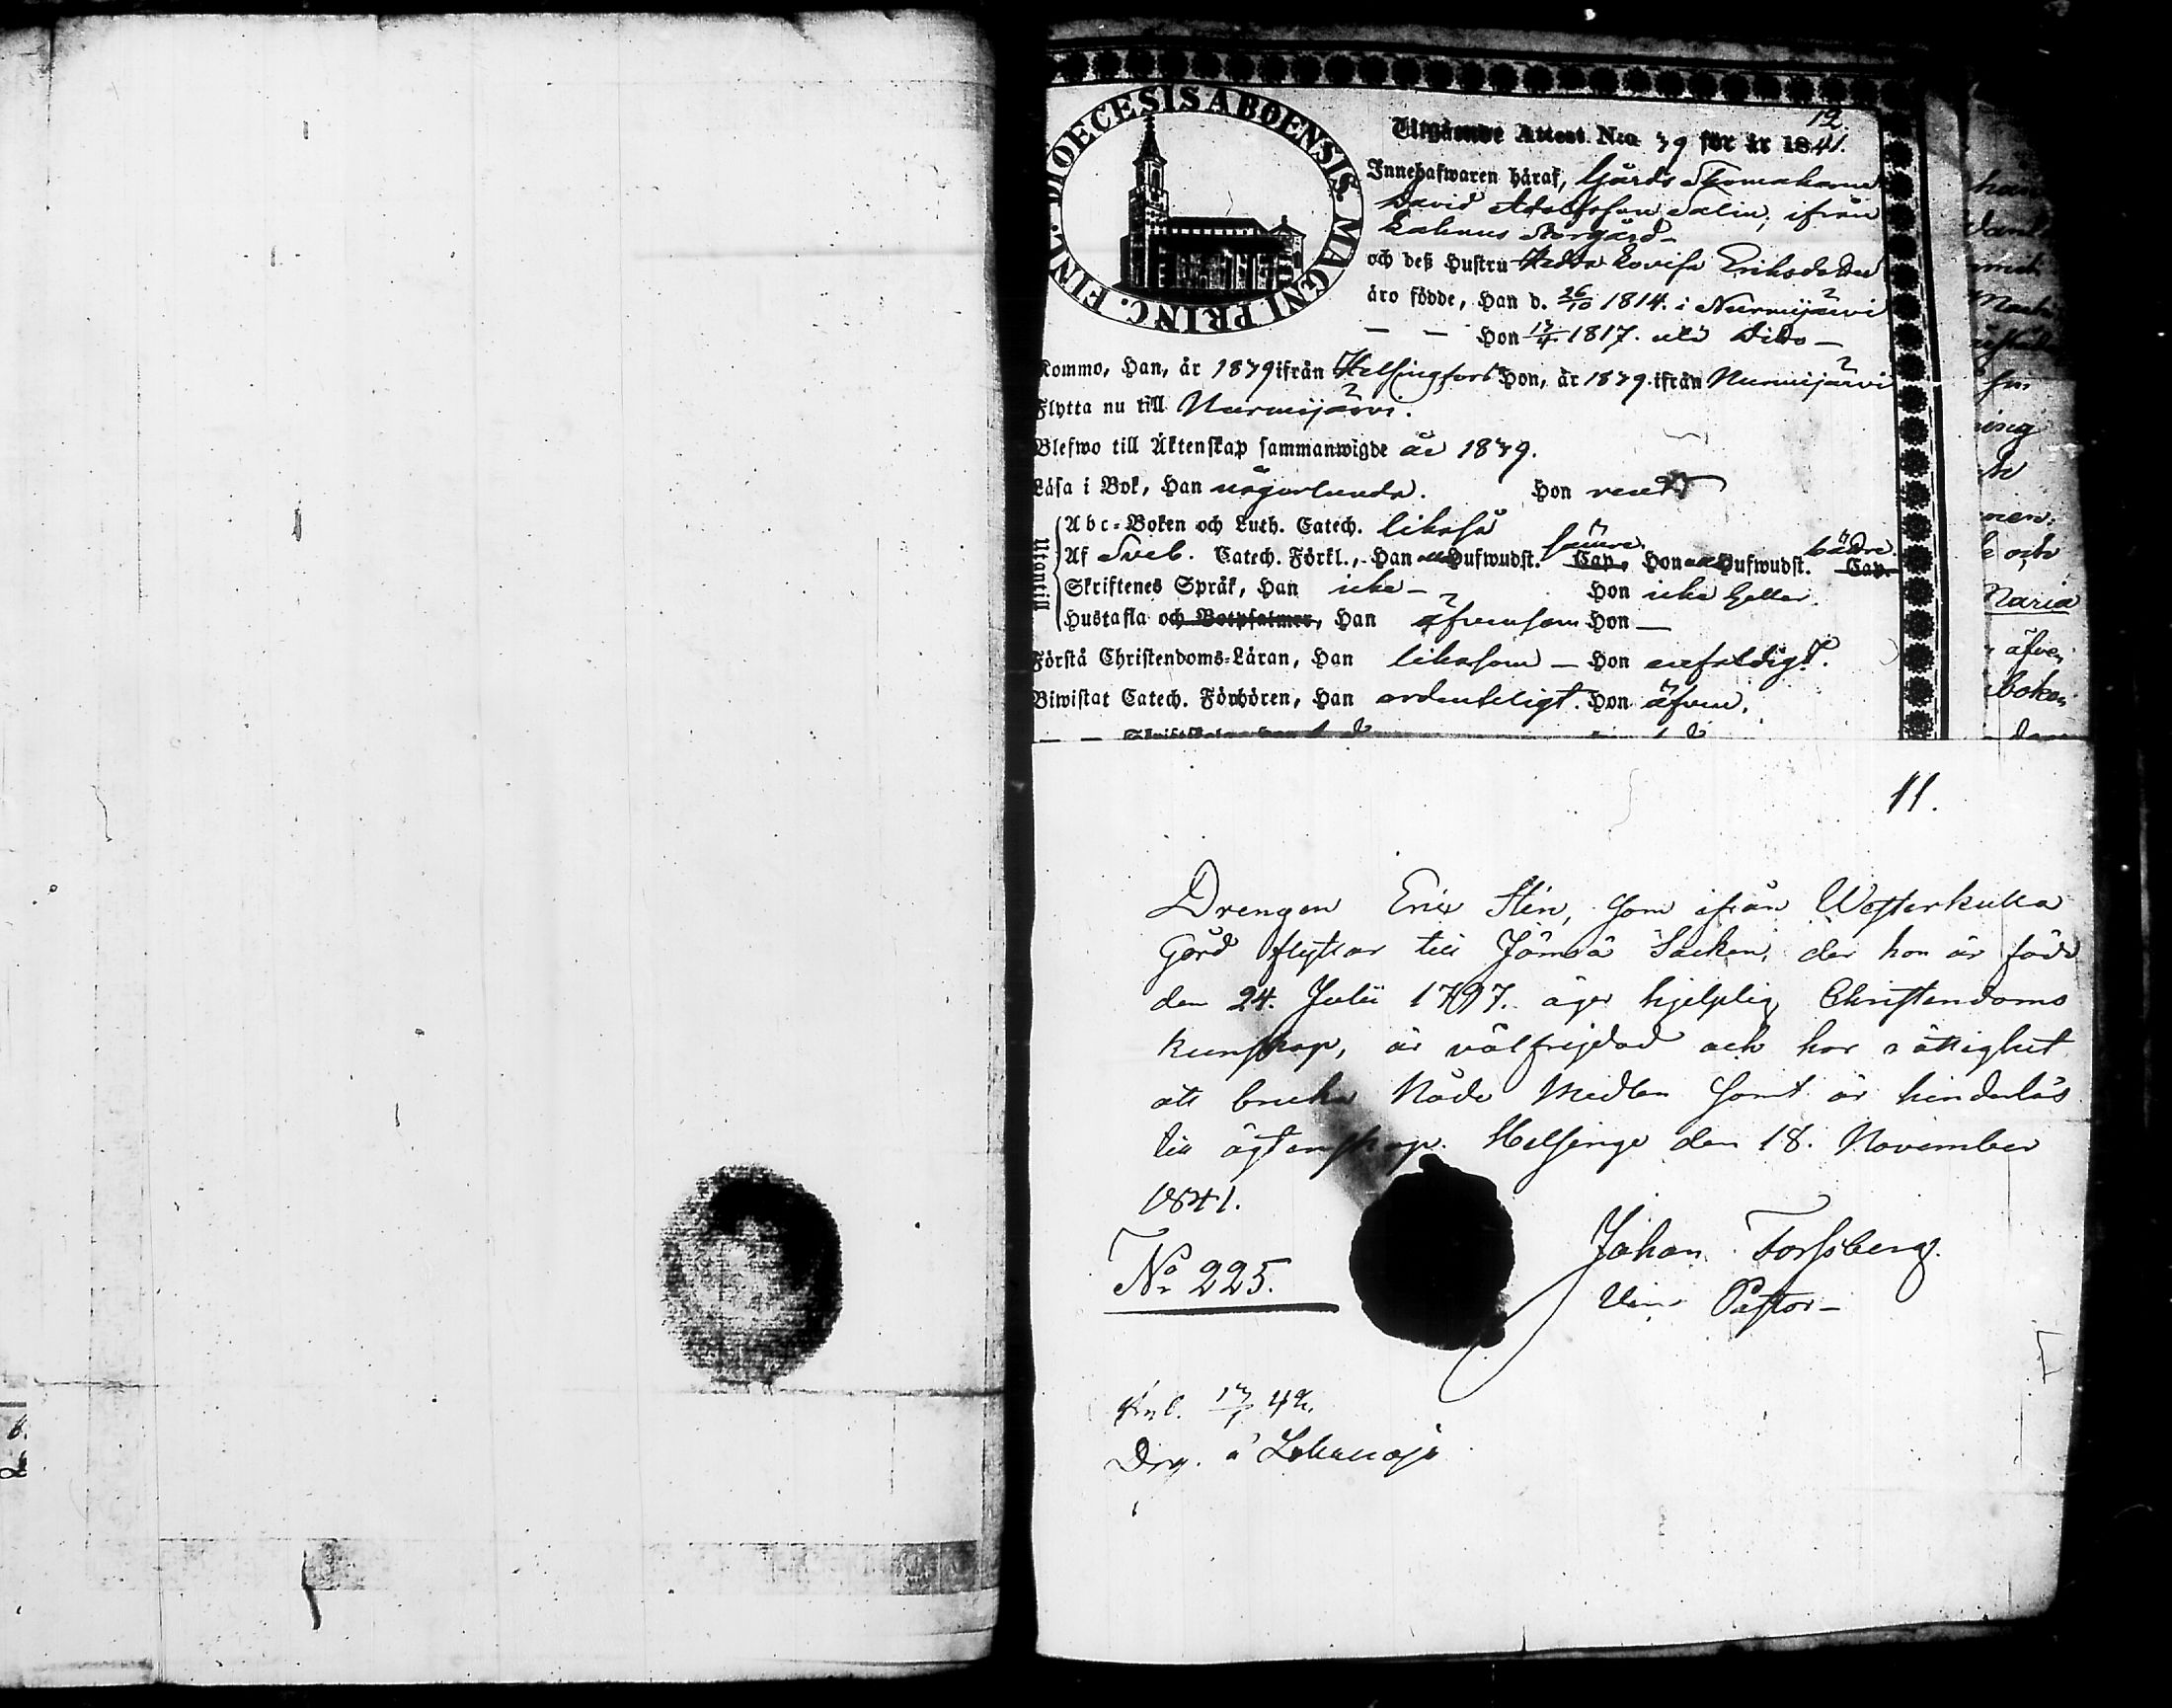 DIOECESIS ABOENSIS. MAGNI PRINC. FINL.
12.
Utgående Attest. N:o 39 för år 1841.
Innehafwaren häraf, Gårds Skomakaren
David Adolfsson Salin, ifrån
Norgård
och deß Hustru Hedda Lovisa Eriksdotter
äro födde, Han d. 26/10 1814. i Nurmijärvi
— — Hon 17/4 1817. uti Dito —
Kommo, Han, år 1839 ifrån Helsingfors Hon, år 1839. ifrån Nurmijärvi
Flytta nu till Nurmijärvi.
Blefwo till Äktenskap sammanwigde år 1839.
Läsa i Bok, Han någorlunda. Hon rent
Utantill
Abc-Boken och Luth. Catech. likaså
Af Sveb. Catech. Förkl., Han Hufwudst. sämre. Cap. Hon Hufwudst. bättre. Cap.
Skriftenes Språk, Han icke — Hon icke heller.
Hustafla och Botpsalmer, Han äfvensom Hon —
Förstå Christendoms-Läran, Han likasom — Hon enfaldigt.
Biwistat Catech. Förhören, Han ordenteligt. Hon äfven.
Maria
äfven
11.
Drengen Eric Sten, som ifrån Westerkulla
Gård flyttar till Jämsä Socken, der han är född
den 24. Julii 1797. äger hjelplig Christendoms
kunskap, är välfrejdad och har rättighet
att bruka Nåde Medlen samt är hinderlös
till ägtenskap. Helsinge den 18. November
1841.
No 225.
Johan Forssberg.
Vice Pastor —
Ank. 17/1 42.
Drg. å